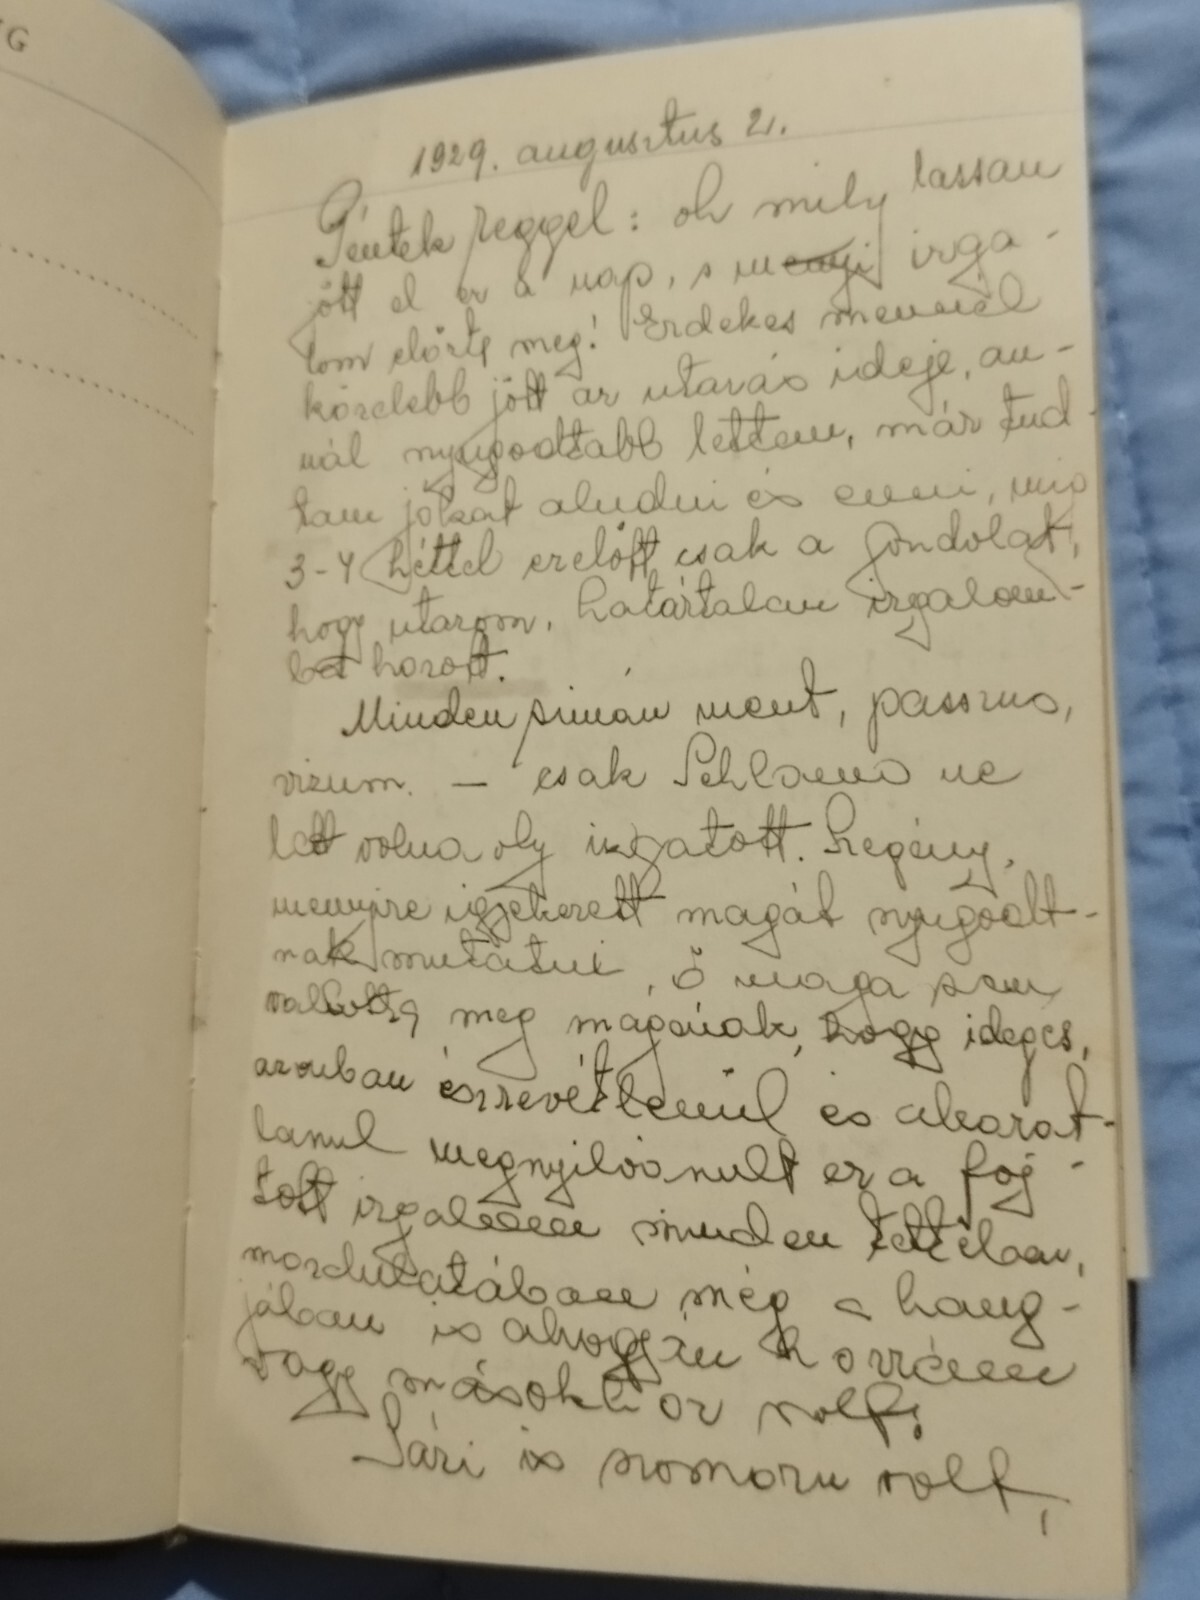 G
1929. augusztus 2.
Péntek reggel: oh mily lassan
jött el ez a nap, s mennyi izga-
lom előzte meg! Érdekes mennél
közelebb jött az utazás ideje, an-
nál nyugodtabb lettem, már tud-
tam jókat aludni és enni, míg
3-4 héttel ezelőtt csak a gondolat,
hogy utazom, határtalan izgalom-
ba hozott.
Minden simán ment, passzus,
vizum. — csak Schlomo ne
lett volna oly izgatott. Szegény,
mennyire igyekezett magát nyugodt-
nak mutatni, ő maga sem
vallotta meg magának, hogy ideges,
azonban észrevétlenül és akarat-
lanul megnyilvánult ez a foj-
tott izgalom minden tettében,
mozdulatában még a hang-
jában is ahogyan hozzám
vagy másokhoz szolt.
Sári is szomoru volt,